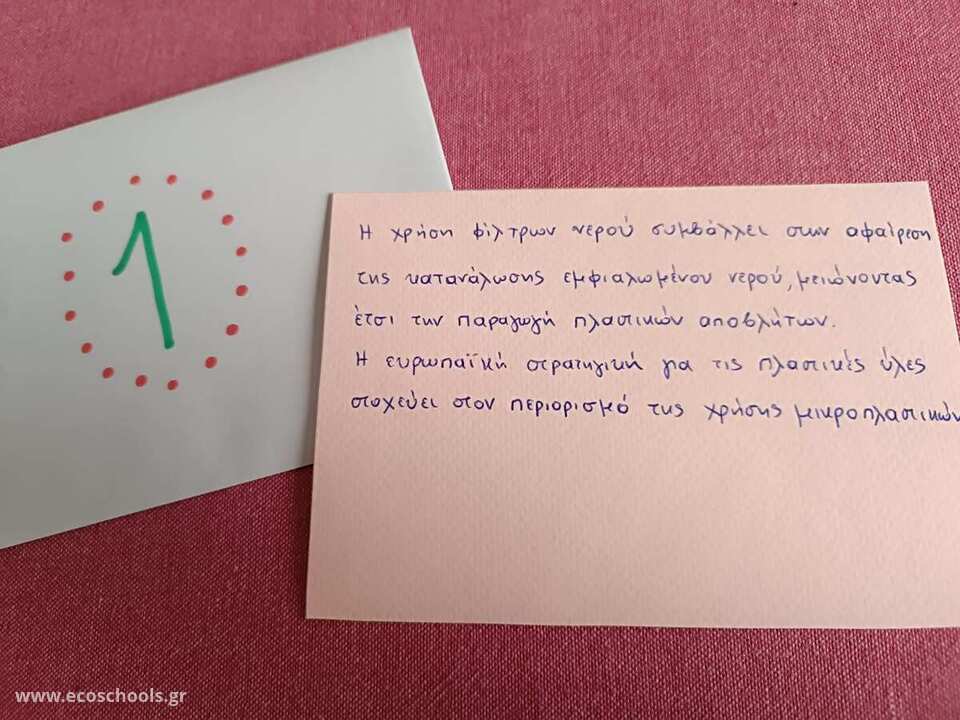 1
Η χρήση φίλτρων νερού συμβάλλει στην αφαίρεση
της κατανάλωσης εμφιαλωμένου νερού, μειώνοντας
έτσι την παραγωγή πλαστικών αποβλήτων.
Η ευρωπαϊκή στρατηγική για τις πλαστικές ύλες
στοχεύει στον περιορισμό της χρήσης μικροπλαστικών
www.ecoschools.gr